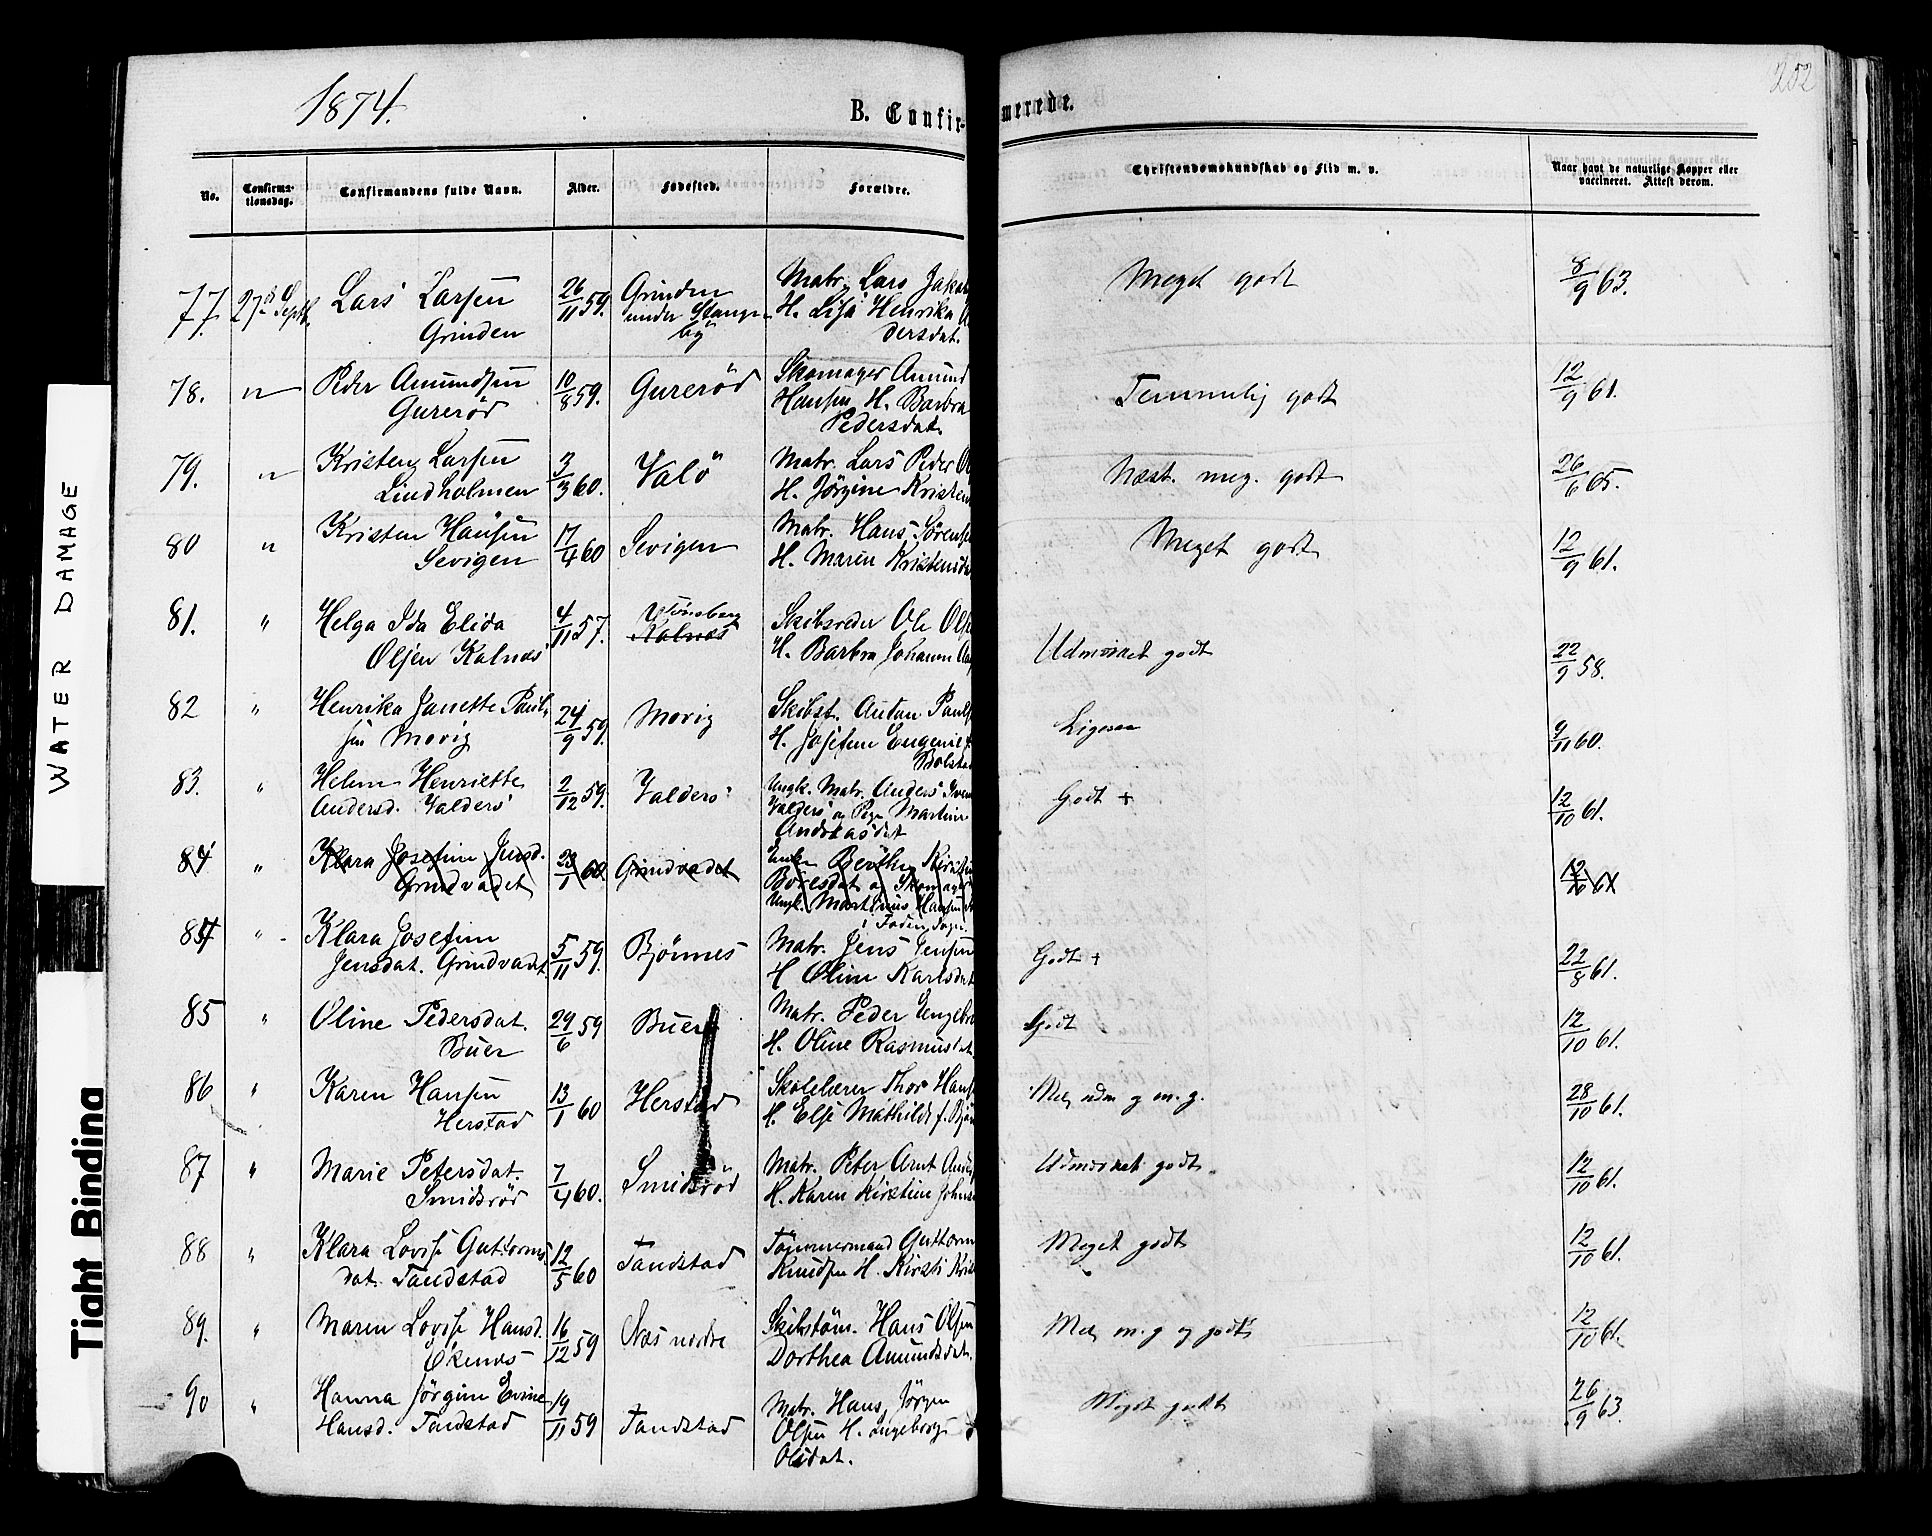 1874.
B. Confir-
merede.
202
No.
Confirma-
tionsdag.
Confirmandens fulde Navn.
Alder.
Fødested.
Forældre.
Christendomskundskab og Flid m. v.
Naar havt de naturlige Kopper eller
vaccineret. Attest derom.
77. 27de Septb. Lars Larsen
Grinden
26/11 59.
Grinden
under Stange-
by
Matr. Lars Jakob
H. Lisa Henrika
dersdat.
Meget godt
8/9 63.
78. " Peder Amundsen
Gurerød
10/8 59.
Gurerød
Skomager Amund
Hansen H. Barbra
Pedersdat.
Temmelig godt
12/9 61.
79. " Kristen Larsen
Lindholmen
3/3 60.
Valø
Matr. Lars Peder
H. Jörgine Kristens
Næst. meg. godt
26/6 65.
80 " Kristen Hansen
Sevigen
17/4 60
Sevigen
Matr. Hans Sörens
H. Maren Kristensda
Meget godt
12/9 61.
81. " Helga Ida Elida
Olsen Kalnæs
4/11 57.
Tønsberg
Kalnæs
Skibsreder Ole Ols
H. Barbra Johanne
Udmærket godt
22/9 58.
82 " Henrika Janette Paul-
sen Morig
24/9 59.
Morig
Skibst. Anton Pauls
H. Josefine Eugenie f.
Bolstad
Ligesaa
9/11 60.
83. " Helene Henriette
Andersd. Valders
2/12 59.
Valders
Ungk. Matr. Anders Iver
Valders og Pige Martine
Andreasdat
Godt +
12/10 61.
84 " Klara Josefine Jensd.
Grindvadet
23/1 60
Grindvadet
Enke Berthe Kirstine
Böresdat og Skomager
Ungk. Martinus Hansen
12/10 61
84 " Klara Josefine
Jensdat. Grindvadet
5/11 59.
Bjönnes
Matr. Jens Jensen
H Oline Karlsdat
Godt +
22/8 61.
85 " Oline Pedersdat.
Buer
29/6 59
Buer
Matr. Peder Engebre
H. Oline Rasmusdat
Godt
12/10 61.
86 " Karen Hansen
Herstad
13/1 60
Herstad
Skolelærer Thor Hans
H. Else Mathilde f. Bjön
Mel. udm og m. g.
28/10 61.
87 " Marie Petersdat.
Smidsrör
7/4 60.
Smidsröd
Matr. Peter Arnt Anders
H. Karen Kirstine Johns
Udmærket godt.
12/10 61.
88 " Klara Lovise Guttorms
dat. Tandstad
12/5 60
Tandstad
Tömmermand Guttorm
Knudsen H. Kirsti Kris
Meget godt
12/10 61.
89. " Maren Lovise Hansd.
Ekenæs
16/12 59
Næs nedre
Skibstöm. Hans Olsen
Dorthea Amundsdat.
Mel. m. g og godt
12/10 61.
90 " Hanna Jörgine Evine
Hansd. Tandstad
19/11 59
Tandstad
Matr. Hans Jörgen
Olsen H. Ingeborg
Olsdat.
Meget godt
26/9 63.
WATER DAMAGE
Tight Binding